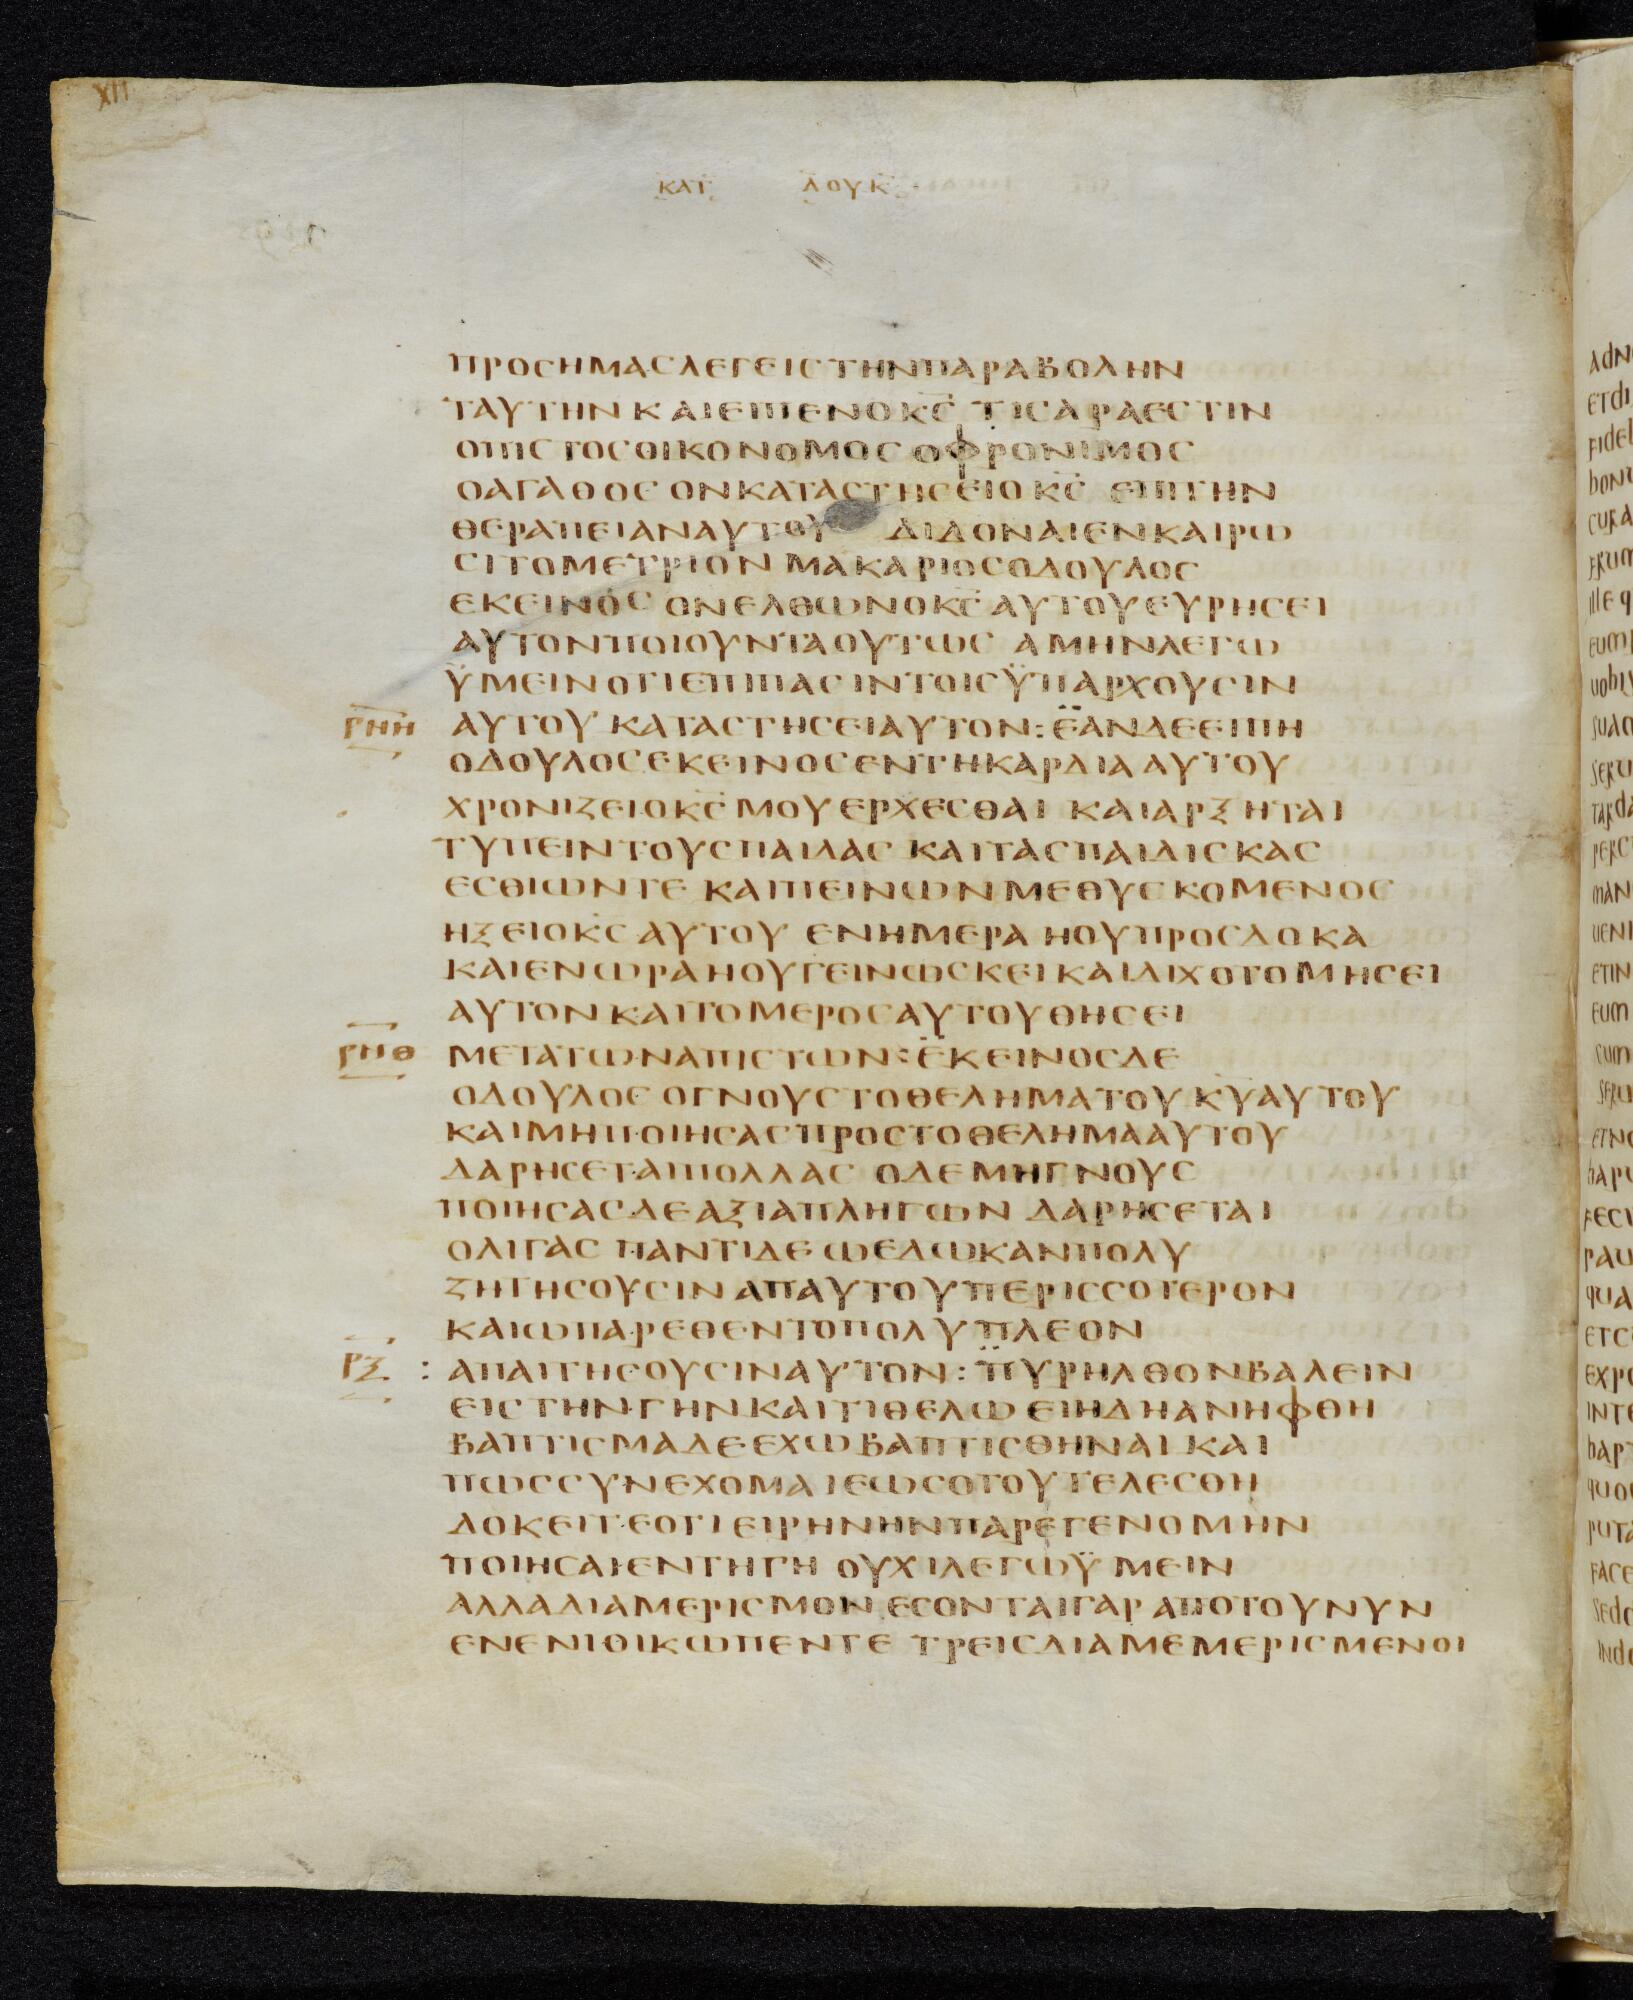 XII
ΚΑΤ ΛΟΥΚ
ΠΡΟСΗΜΑСΛΕΓΕΙСΤΗΝΠΑΡΑΒΟΛΗΝ
ΤΑΥΤΗΝΚΑΙΕΙΠΕΝΟΚ̅С̅ ΤΙСΑΡΑΕСΤΙΝ
ΟΠΙСΤΟСΟΙΚΟΝΟΜΟСΟΦΡΟΝΙΜΟС
ΟΑΓΑΘΟС ΟΝΚΑΤΑСΤΗСΕΙΟΚ̅С̅ ΕΠΙΤΗΝ
ΘΕΡΑΠΕΙΑΝΑΥΤΟΥ ΔΙΔΟΝΑΙΕΝΚΑΙΡΩ
СΙΤΟΜΕΤΡΙΟΝ ΜΑΚΑΡΙΟСΟΔΟΥΛΟС
ΕΚΕΙΝΟС ΟΝΕΛΘΩΝΟΚ̅С̅ΑΥΤΟΥΕΥΡΗСΕΙ
ΑΥΤΟΝΠΟΙΟΥΝΤΑΟΥΤΩС ΑΜΗΝΛΕΓΩ
ΫΜΕΙΝΟΤΙΕΠΙΠΑСΙΝΤΟΙСΫΠΑΡΧΟΥСΙΝ
ΡΝΗ ΑΥΤΟΥ ΚΑΤΑСΤΗСΕΙΑΥΤΟΝ: ΕΑΝΔΕΕΙΠΗ
ΟΔΟΥΛΟСΕΚΕΙΝΟСΕΝΤΗΚΑΡΔΙΑΑΥΤΟΥ
ΧΡΟΝΙΖΕΙΟΚ̅С̅ΜΟΥΕΡΧΕСΘΑΙ ΚΑΙΑΡΞΗΤΑΙ
ΤΥΠΕΙΝΤΟΥСΠΑΙΔΑС ΚΑΙΤΑСΠΑΙΔΙСΚΑС
ΕСΘΙΩΝΤΕ ΚΑΙΠΕΙΝΩΝΜΕΘΥСΚΟΜΕΝΟС
ΗΞΕΙΟΚ̅С̅ΑΥΤΟΥ ΕΝΗΜΕΡΑ ΗΟΥΠΡΟСΔΟΚΑ
ΚΑΙΕΝΩΡΑΗΟΥΓΕΙΝΩСΚΕΙΚΑΙΔΙΧΟΤΟΜΗСΕΙ
ΑΥΤΟΝΚΑΙΤΟΜΕΡΟСΑΥΤΟΥΘΗСΕΙ
ΡΝΘ ΜΕΤΑΤΩΝΑΠΙСΤΩΝ: ΕΚΕΙΝΟСΔΕ
ΟΔΟΥΛΟС ΟΓΝΟΥСΤΟΘΕΛΗΜΑΤΟΥΚ̅Υ̅ΑΥΤΟΥ
ΚΑΙΜΗΠΟΙΗСΑСΠΡΟСΤΟΘΕΛΗΜΑΑΥΤΟΥ
ΔΑΡΗСΕΤΑΙΠΟΛΛΑС ΟΔΕΜΗΓΝΟΥС
ΠΟΙΗСΑСΔΕΑΞΙΑΠΛΗΓΩΝ ΔΑΡΗСΕΤΑΙ
ΟΛΙΓΑС ΠΑΝΤΙΔΕΩΕΔΩΚΑΝΠΟΛΥ
ΖΗΤΗСΟΥСΙΝΑΠΑΥΤΟΥΠΕΡΙССΟΤΕΡΟΝ
ΚΑΙΩΠΑΡΕΘΕΝΤΟΠΟΛΥΠΛΕΟΝ
ΡΞ : ΑΠΑΙΤΗСΟΥСΙΝΑΥΤΟΝ: ΠΥΡΗΛΘΟΝΒΑΛΕΙΝ
ΕΙСΤΗΝΓΗΝΚΑΙΤΙΘΕΛΩΕΙΗΔΗΑΝΗΦΘΗ
ΒΑΠΤΙСΜΑΔΕΕΧΩΒΑΠΤΙСΘΗΝΑΙΚΑΙ
ΠΩССΥΝΕΧΟΜΑΙΕΩСΟΤΟΥΤΕΛΕСΘΗ
ΔΟΚΕΙΤΕΟΤΙΕΙΡΗΝΗΝΠΑΡΕΓΕΝΟΜΗΝ
ΠΟΙΗСΑΙΕΝΤΗΓΗ ΟΥΧΙΛΕΓΩΫΜΕΙΝ
ΑΛΛΑΔΙΑΜΕΡΙСΜΟΝΕСΟΝΤΑΙΓΑΡΑΠΟΤΟΥΝΥΝ
ΕΝΕΝΙΟΙΚΩΠΕΝΤΕ ΤΡΕΙСΔΙΑΜΕΜΕΡΙСΜΕΝΟΙ